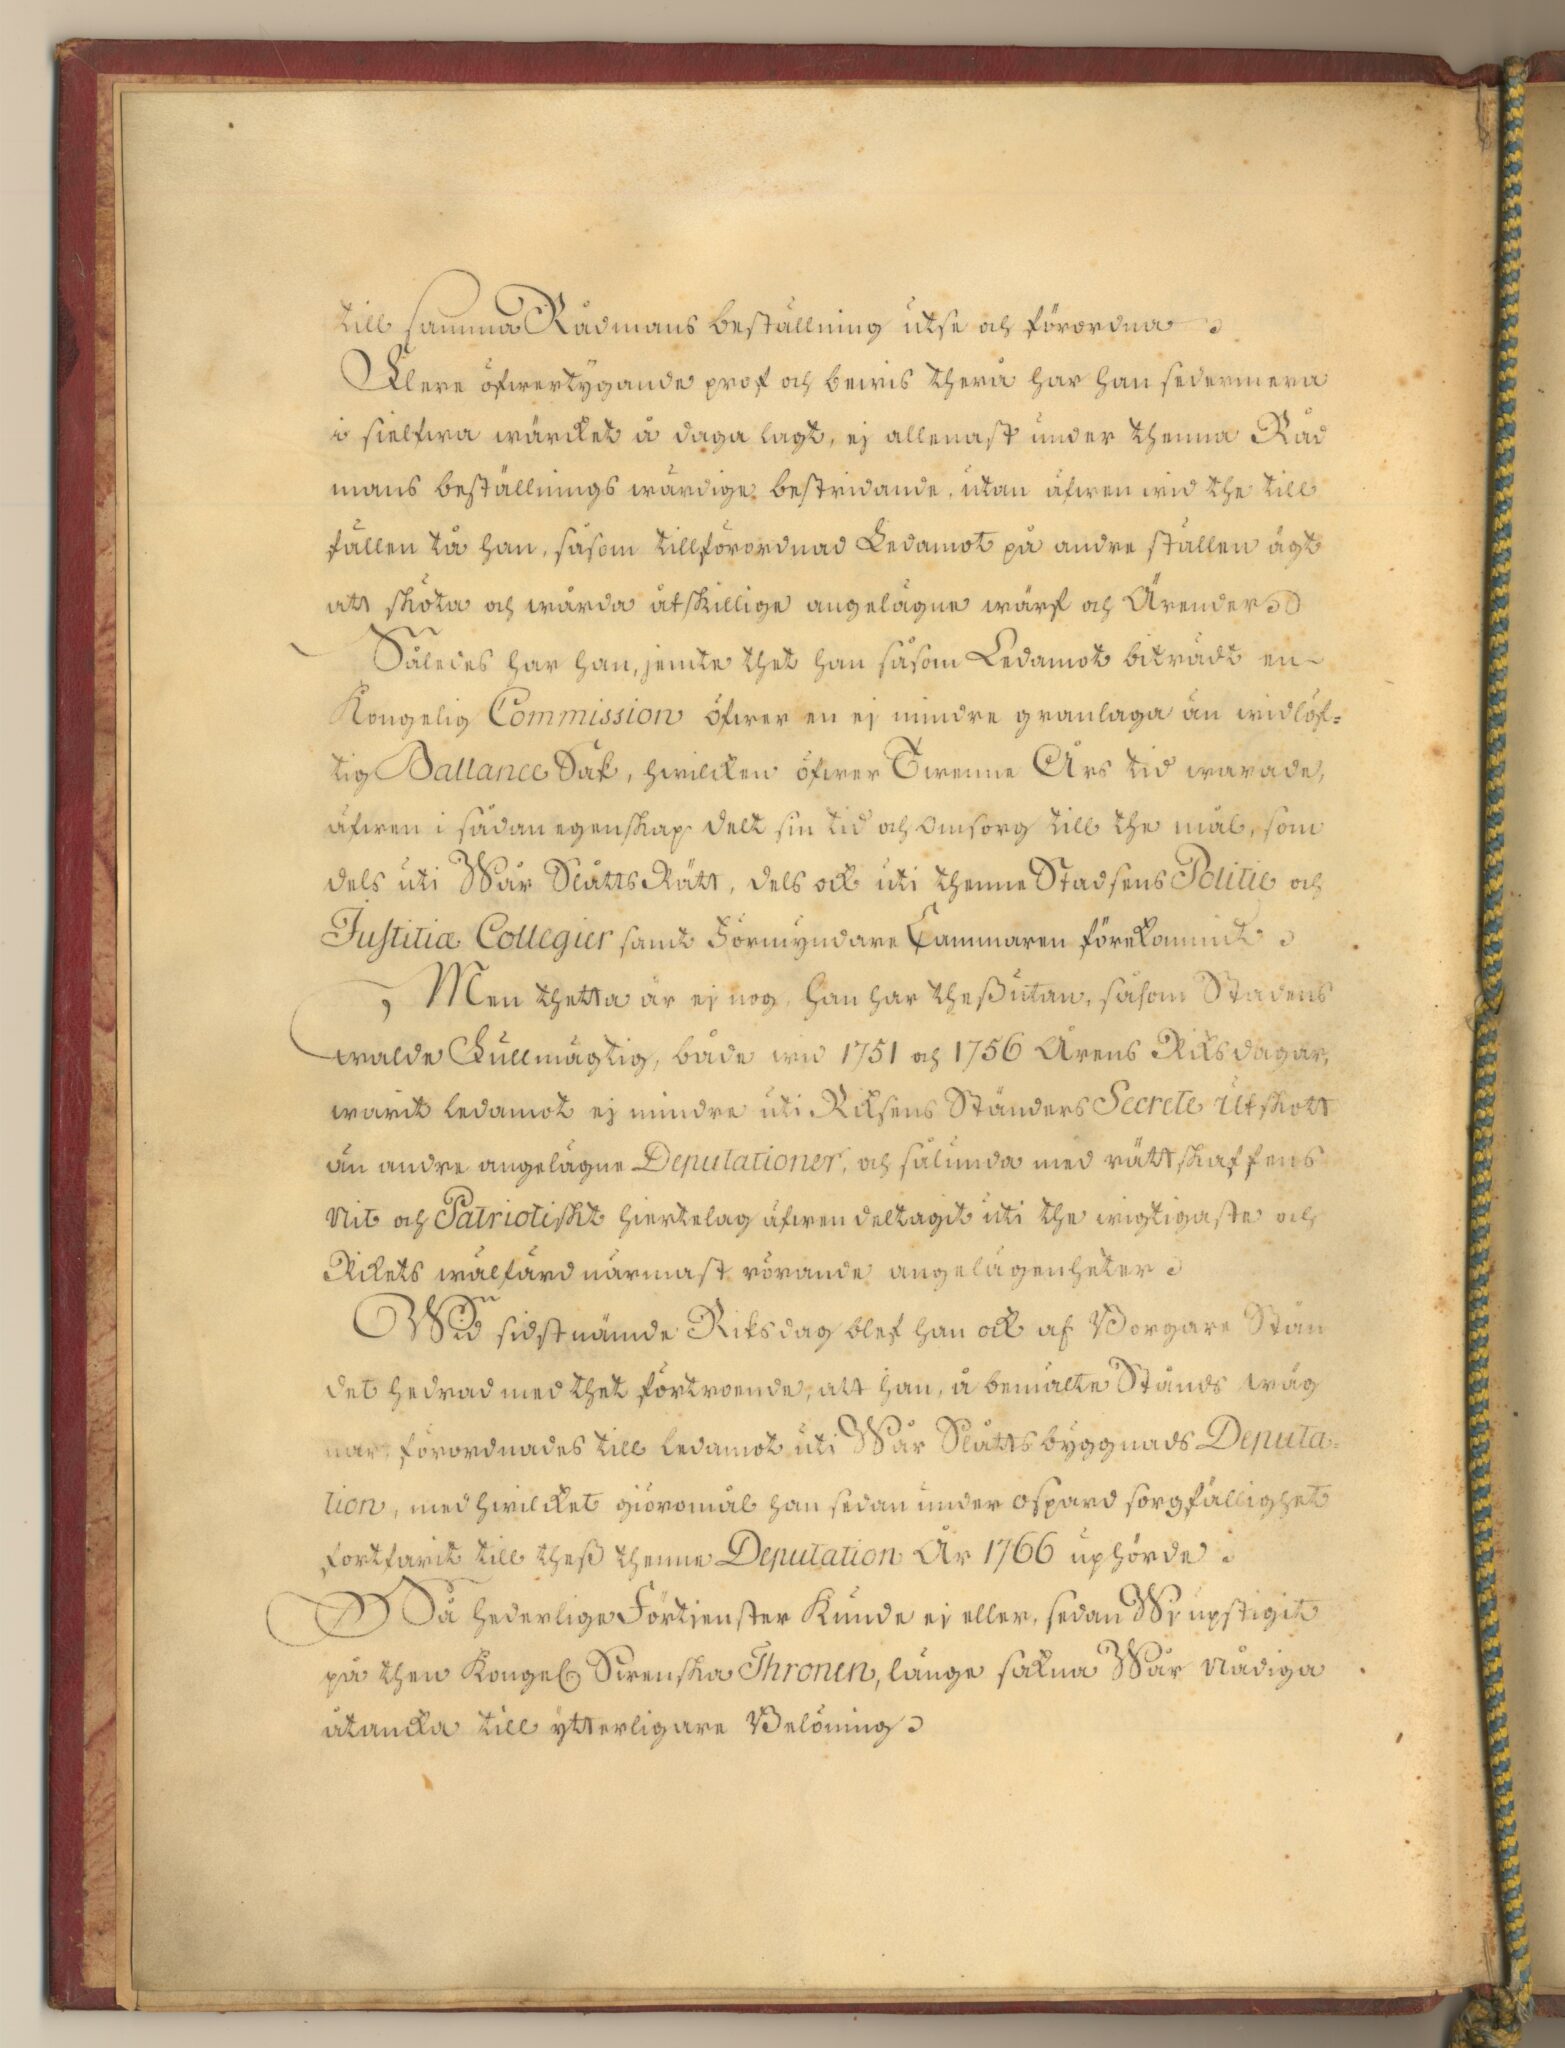 till samma Rådmans beställning utse och förordna
Flere öfwertygande prof och bewis therå har han sedermera
i sielfwa wärcket å daga lagt, ej allenast under thenna Råd
mans beställnings wärdige bestridande, utan äfwen wid the till
fällen tå han, såsom tillförordnad Ledamot på andre ställen ägt
att sköta och wårda åtskillige angelägne wärf och Ärender
Således har han, jemte thet han såsom Ledamot biträdt en
Kongelig Commission öfwer en ej mindre granlaga än widlöf=
tig Ballance Sak, hwilcken öfwer Twenne Års tid warade,
äfwen i sådan egenskap delt sin tid och omsorg till the mål, som
dels uti Wår Slåtts Rätt, dels ock uti thenne Stadsens Politie och
Justitiæ Collegier samt Förmyndare Cammaren förekommit
Men thetta är ej nog, han har theßutan, såsom Stadens
walde Fullmägtig, både wid 1751 och 1756 Årens Riksdagar,
warit ledamot ej mindre uti Riksens Ständers Secrete Utskott
än andre angelägne Deputationer, och sålunda med rättskaffens
Nit och Patriotiskt hiertelag äfwen deltagit uti the wigtigaste och
Rikets wälfärd närmast rörande angelägenheter
Wid sidstnämde Riksdag blef han ock af Borgare Stån
det hedrad med thet förtroende, att han, å bemälte Stånds wäg
nar, förordnades till ledamot uti Wår Slåttsbyggnads Deputa=
tion, med hwilcket giöromål han sedan under ospard sorgfällighet
fortfarit till theß thenne Deputation År 1766 uphörde
Så hederlige Förtjenster kunde ej eller, sedan Wj upstigit
på then Kongel Swenska Thronen, länge sakna Wår Nådiga
åtancka till ytterligare Belöning